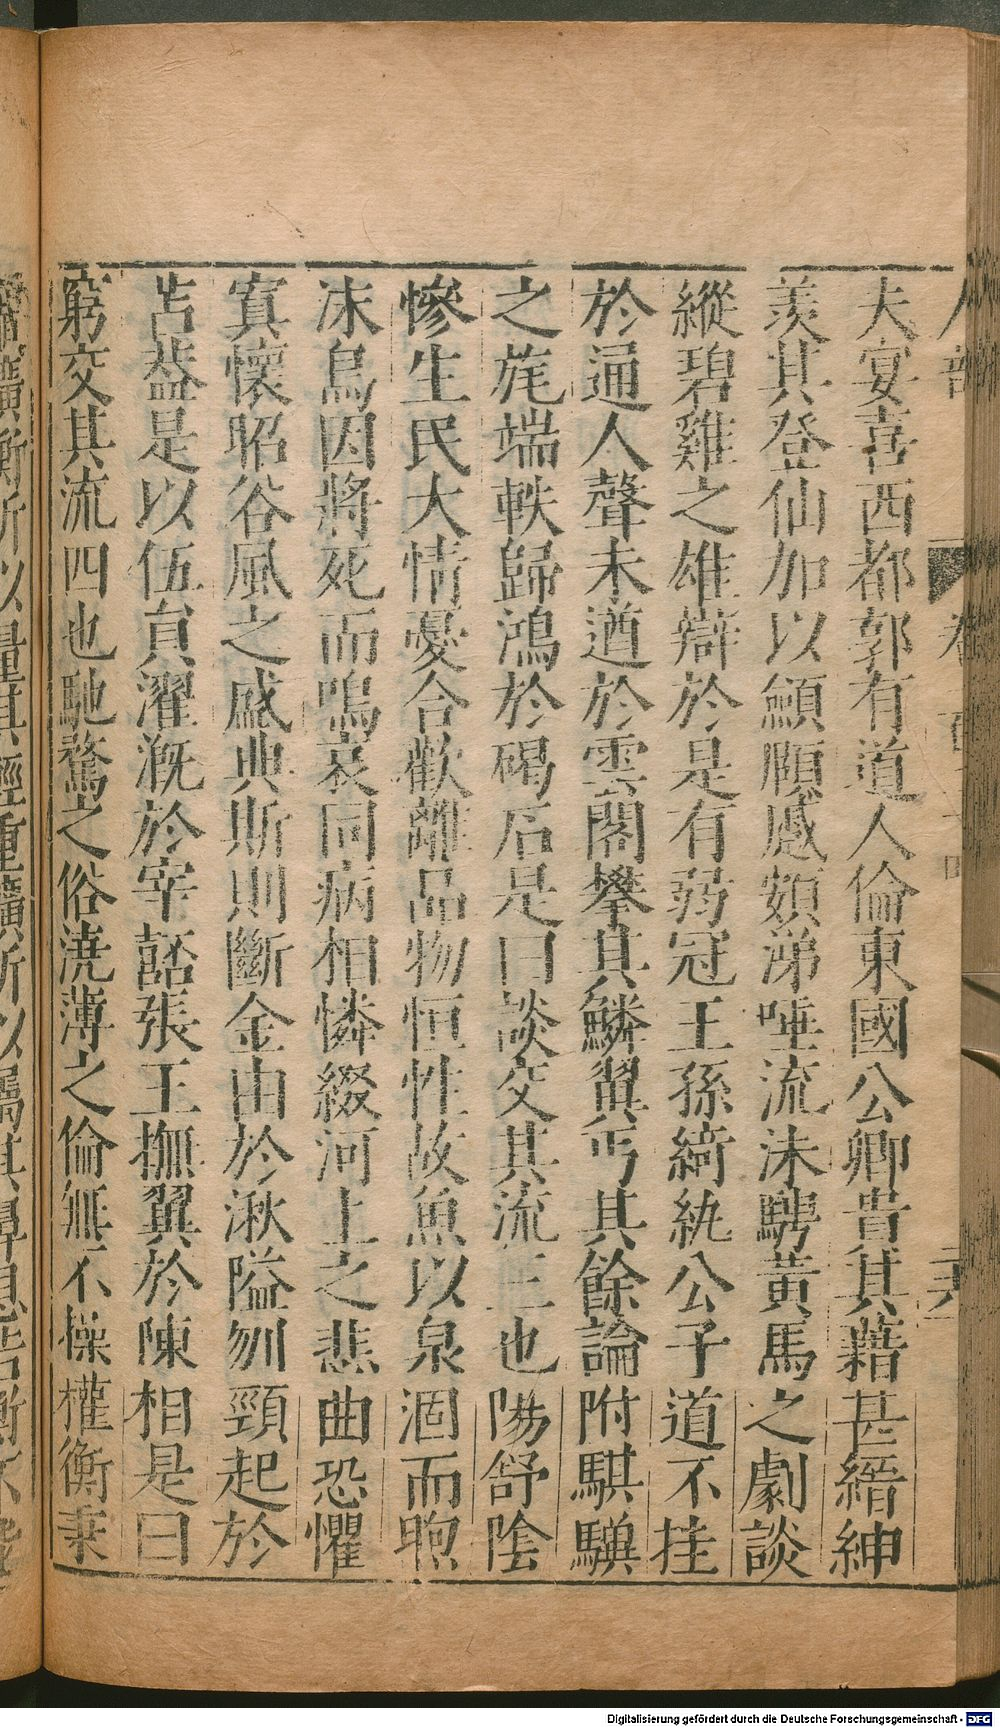 大宴喜西都郭有道人倫東國公卿貴其藉甚縉紳
羨其登仙加以顩頤蹙頞涕唾流沬騁黃馬之劇談
縱碧雞之雄辯於是有弱冠王孫綺紈公子道不挂
於通人聲未遒於雲閣攀其鱗翼丐其餘論附騏驥
之旄端軼歸鴻於碣石是曰談交其流三也陽舒陰
慘生民大情憂合歡離品物恒性故魚以泉涸而呴
沫鳥因將死而鳴哀同病相憐綴河上之悲曲恐懼
寘懷昭谷風之盛典斯則斷金由於湫隘刎頸起於
苫蓋是以伍員濯溉於宰嚭張王撫翼於陳相是曰
窮交其流四也馳騖之俗澆薄之倫無不操權衡秉
人部
卷
Digitalisierung gefördert durch die Deutsche Forschungsgemeinschaft - DFG